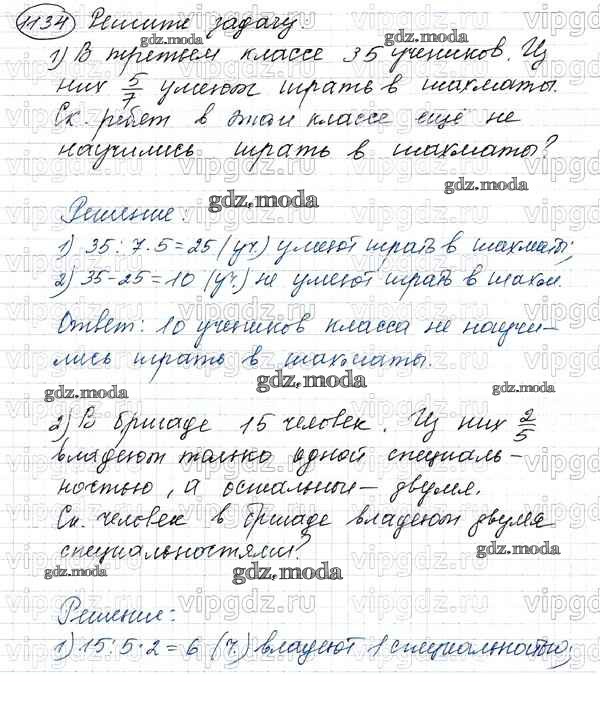 1134 Решите задачу.
1) В третьем классе 35 учеников. Из
них 5/7 умеют играть в шахматы.
Ск. ребят в этом классе ещё не
научились играть в шахматы?
gdz.moda
Решение:
1) 35 : 7 · 5 = 25 (уч.) умеют играть в шахматы;
2) 35 - 25 = 10 (уч.) не умеют играть в шахм.
Ответ: 10 учеников класса не научи-
лись играть в шахматы.
gdz.moda
2) В бригаде 15 человек. Из них 2/5
владеют только одной специаль-
ностью, а остальные - двумя.
Ск. человек в бригаде владеют двумя
специальностями?
gdz.moda
Решение:
1) 15 : 5 · 2 = 6 (ч.) владеют 1 специальностью;